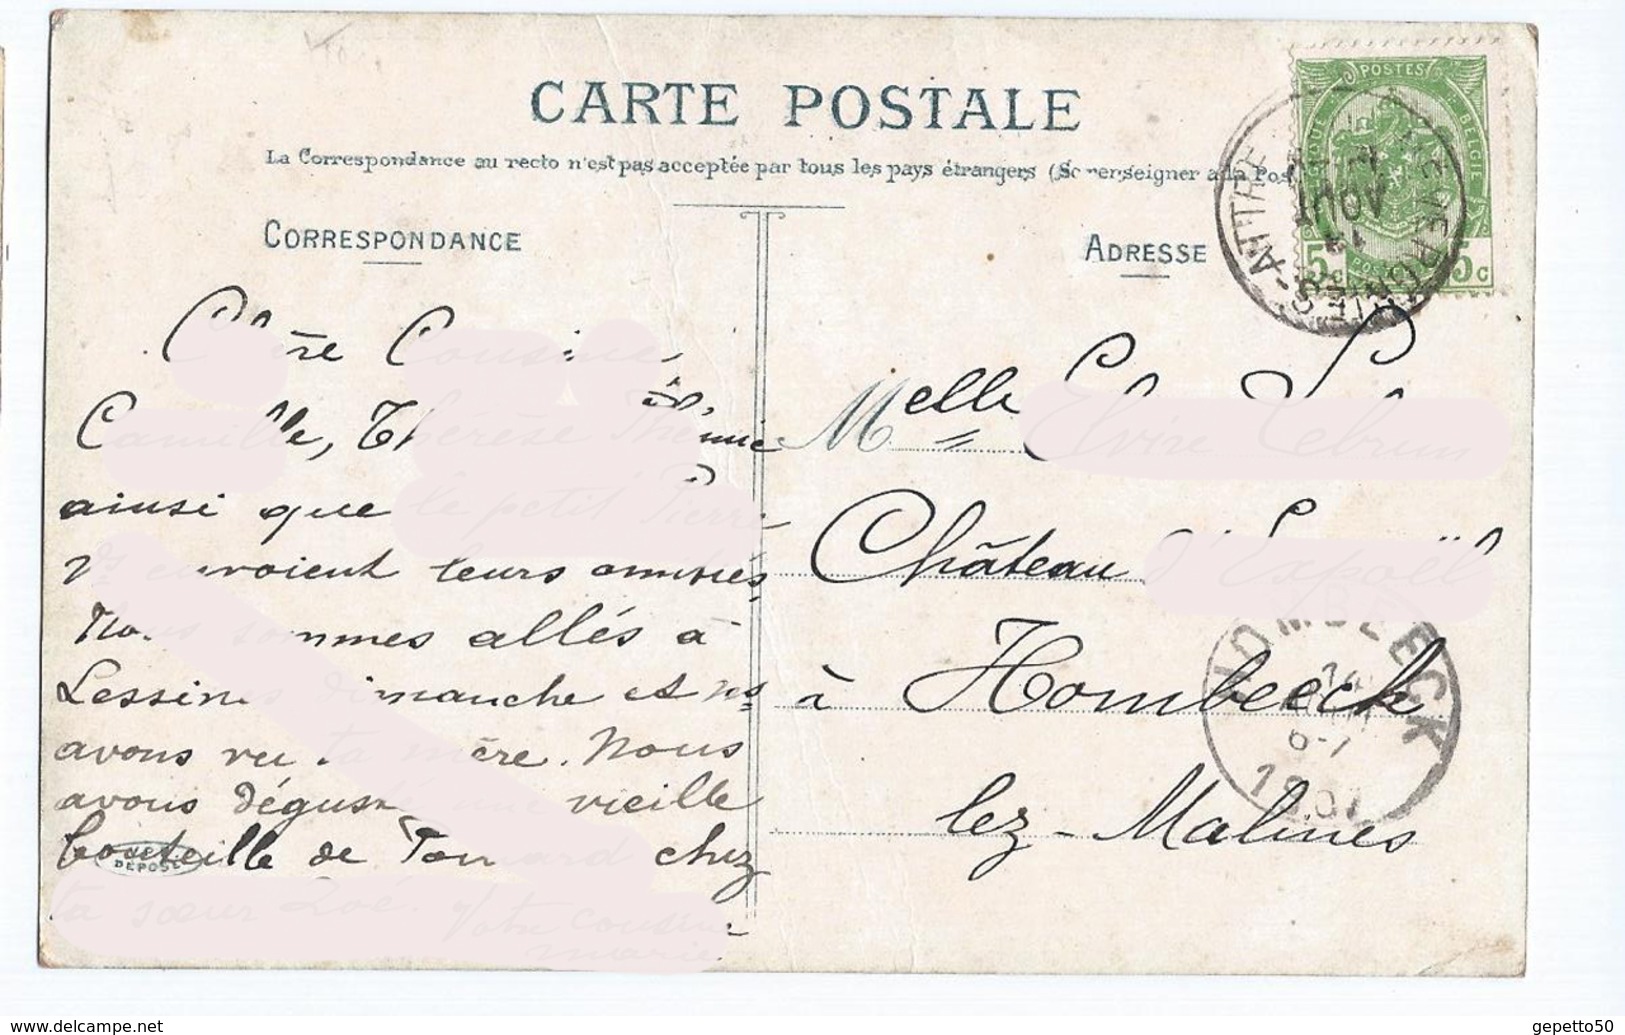 CARTE POSTALE
La Correspondance au recto n'est pas acceptée par tous les pays étrangers (Se renseigner à la Pos
CORRESPONDANCE
Chère Cousine,
Camille, Thérèse
ainsi que le petit Pierre
vs envoient leurs amitiés
Nous sommes allés à
Lessines dimanche et ns
avons vu ta mère. Nous
avons dégusté une vieille
bouteille de chez
ta sœur Zoé. Votre cousine
Marie
DÉPOSÉ
ADRESSE
Melle Elvire Lebrun
Château
à Hombeeck
lez-Malines
POSTES
BELGIQUE
BELGIE
5 c 5 c
AOUT
HOMBEECK
6-7
1907
www.delcampe.net
gepetto50